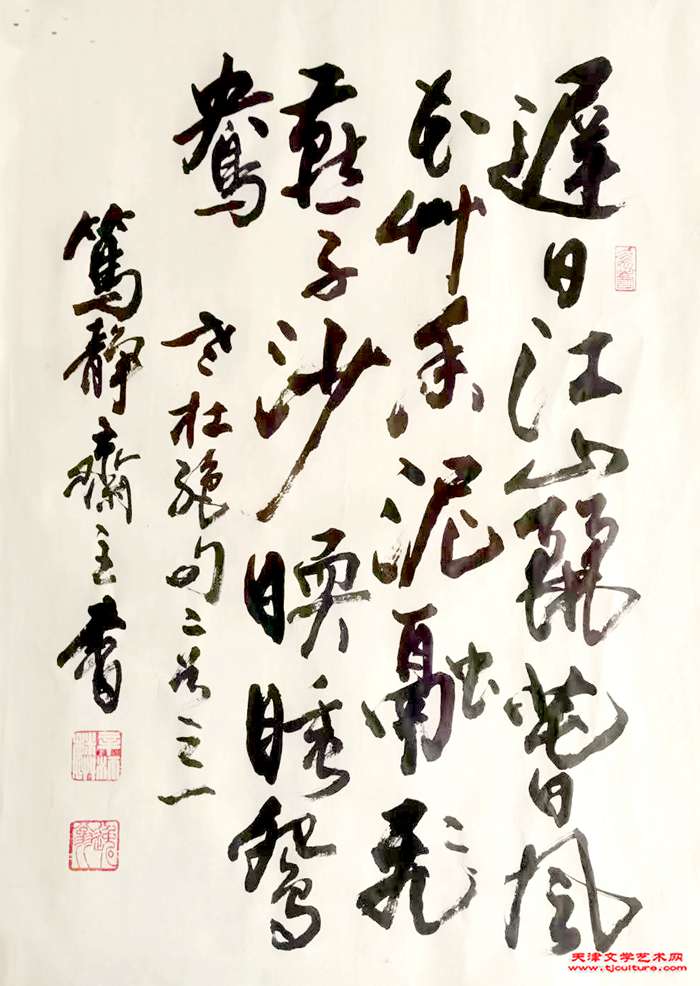 遲日江山麗春風
花草香泥融飛
燕子沙暖睡鴛
鴦
老杜絕句二首之一
篤靜齋主書
天津文学艺术网
www.tjculture.com